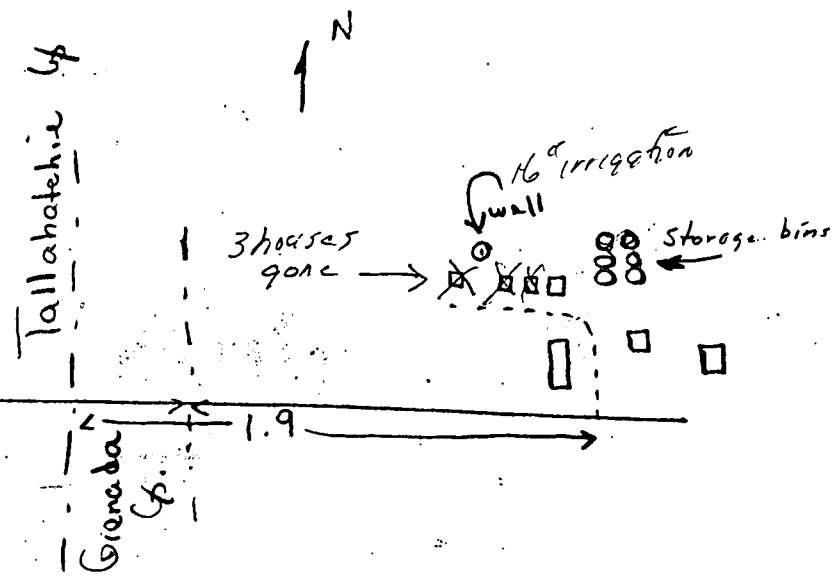 N
Tallahatchie Co
16" irrigation
well
3 houses
gone
Storage bins
1.9
Grenada
Co.